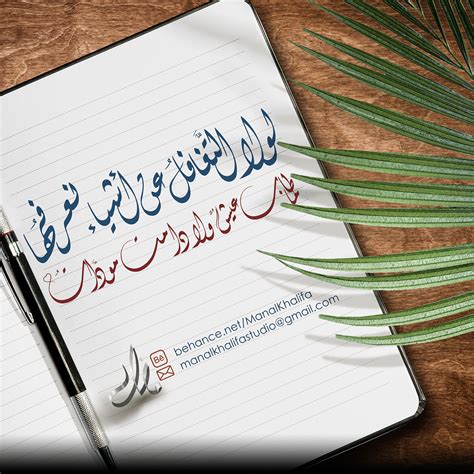 لولا التَّغافلُ عن أشياءَ نعرفها
ما طاب عيشٌ ولا دامت مودّات
behance.net/ManalKhalifa
manalkhalifastudio@gmail.com
Bē